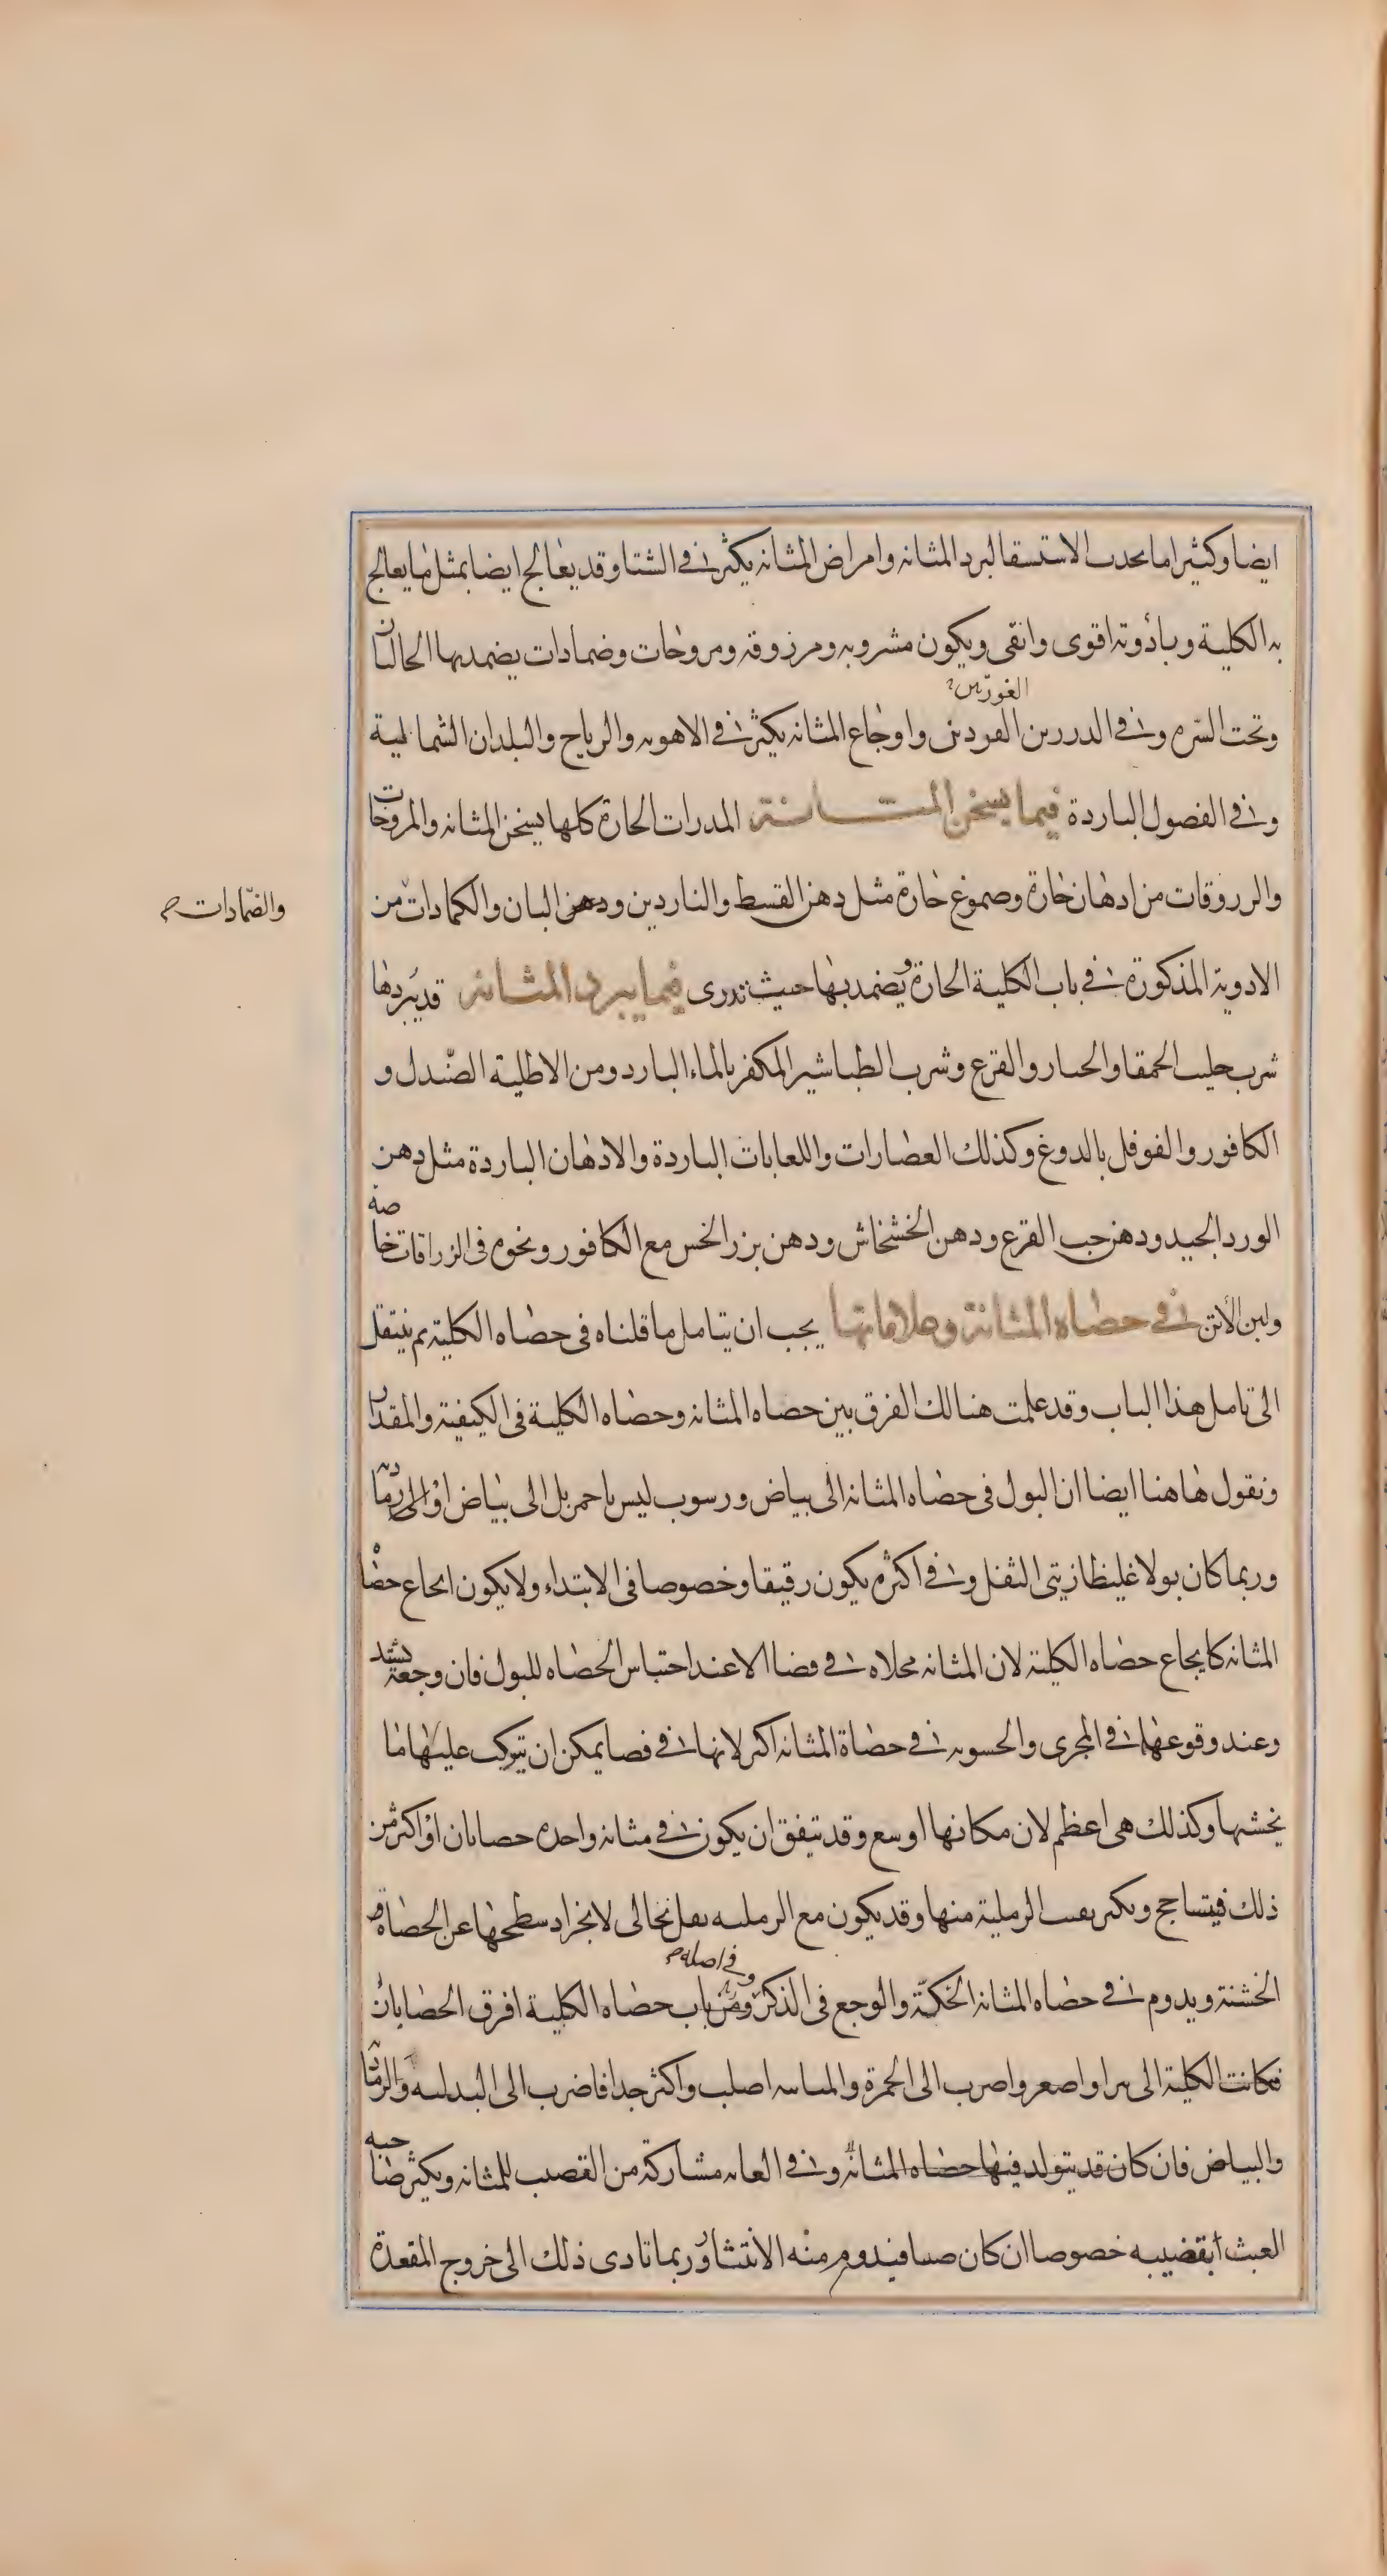 ايضا وكثيرا ما يحدث الاستسقا لبرد المثانه وامراض المثانه يكثر فى الشتا وقد يعالج ايضا بمثل ما يعالج
به الكلية وبادوية اقوى وانقى ويكون مشروبه ومزروقه ومروخات وضمادات يضمد بها الحالبان
الغورين
وتحت السره وفى الدررين الغودين واوجاع المثانه يكثر فى الاهويه والرياح والبلدان الشمالية
وفى الفصول الباردة فيما يسخن المثانة المدرات الحارة كلها يسخن المثانه والمروخات
والزروقات من ادهان حارة وصموغ حارة مثل دهن القسط والناردين ودهن البان والكمادات من
والضمادات
الادوية المذكورة فى باب الكلية الحارة ويضمد بها حيث تدرى فيما يبرد المثانة قد يبردها
شرب حليب الحمقا والخيار والقرع وشرب الطباشير المكفر بالماء البارد ومن الاطلية الصندل و
الكافور والفوفل بالدوغ وكذلك العصارات واللعابات الباردة والادهان الباردة مثل دهن
الورد الجيد ودهن حب القرع ودهن الخشخاش ودهن بزر الخس مع الكافور ونحوه فى الزراقات خاصة
ولبن الأتن فى حصاه المثانة وعلاماتها يجب ان يتامل ما قلناه فى حصاه الكلية ثم ينتقل
الى تامل هذا الباب وقد علمت هنالك الفرق بين حصاه المثانه وحصاه الكلية فى الكيفية والمقدار
ونقول هاهنا ايضا ان البول فى حصاه المثانة الى بياض ورسوب ليس باحمر بل الى بياض او الى رمادية
وربما كان بولا غليظا زيتى الثفل وفى اكثره يكون رقيقا وخصوصا فى الابتداء ولا يكون ايجاع حصاه
المثانه كايجاع حصاه الكلية لان المثانه مخلاه فى فضا الا عند احتباس الحصاه للبول فان وجعه يشتد
وعند وقوعها فى المجرى والخشونه فى حصاة المثانه اكثر لانها فى فضا يمكن ان يتركب عليها ما
يخشنها وكذلك هى اعظم لان مكانها اوسع وقد يتفق ان يكون فى مثانه واحده حصاتان او اكثر من
ذلك فيتساحج ويكثر تفتت الرملية منها وقد يكون مع الرمليه ثفل نخالى لانجراد سطحها عن الحصاة
وفى اصله
الخشنة ويدوم فى حصاه المثانه الحكة والوجع فى الذكر ومن باب حصاه الكلية افرق الحصاتان
فكانت الكلية الى واصغر واضرب الى الحمرة والمثانيه اصلب واكثر جدا فاضرب الى والرمادية
والبياض فان كان قد يتولد فيها حصاه المثانه وفى العانه مشاركة من القضيب للمثانه ويكثر صاحبه
العبث بقضيبه خصوصا ان كان صبيا فيدوم منه الانتشار وربما تادى ذلك الى خروج المقعدة